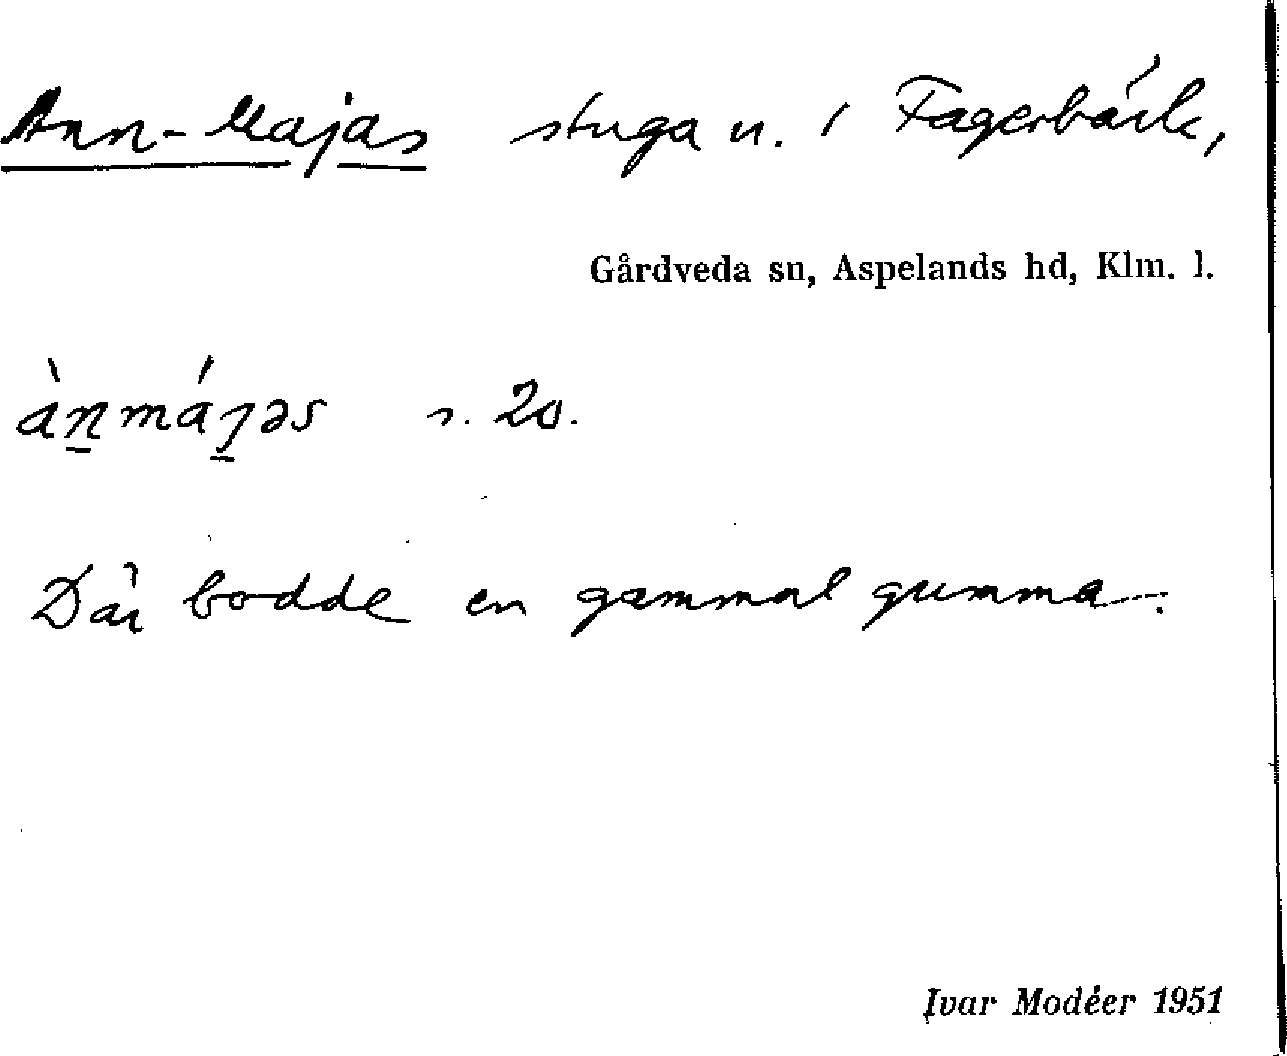 Ann-Majas stuga u. i Fagerbäck,
Gårdveda sn, Aspelands hd, Klm. l.
ànmájəs s. 20.
Där bodde en gammal gumma.
Ivar Modéer 1951